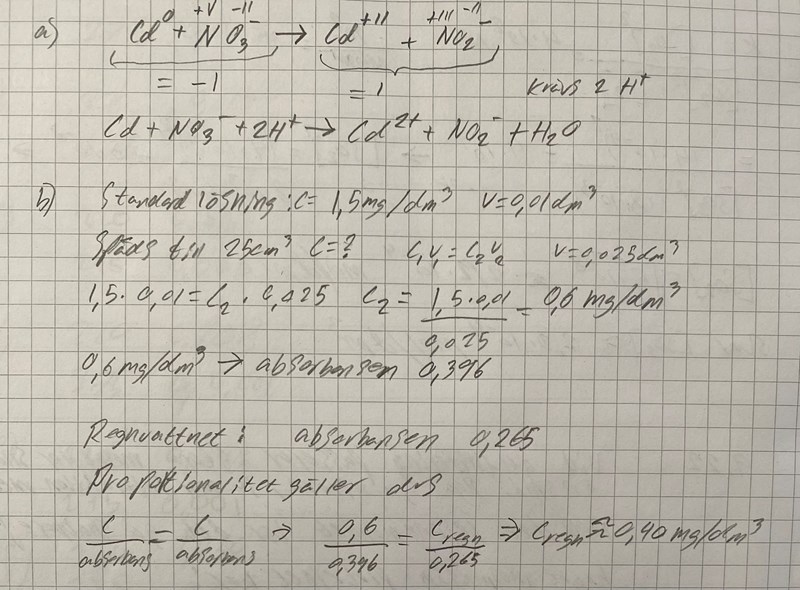 a) Cd⁰ + N⁺ⱽO₃⁻ ⁻ᴵᴵ → Cd⁺ᴵᴵ + N⁺ᴵᴵᴵO₂⁻ ⁻ᴵᴵ
= -1 = 1 Krävs 2 H⁺
Cd + NO₃⁻ + 2H⁺ → Cd²⁺ + NO₂⁻ + H₂O
b) Standard lösning: C = 1,5mg/dm³ V=0,01dm³
Späds till 25cm³ C=? C₁V₁ = C₂V₂ V=0,025dm³
1,5·0,01 = C₂·0,025 C₂ = 1,5·0,01/0,025 = 0,6 mg/dm³
0,6 mg/dm³ → absorbansen 0,396
Regnvattnet: absorbansen 0,265
Proportionalitet gäller dvs
C/absorbans = C/absorbans ⇒ 0,6/0,396 = Cregn/0,265 ⇒ Cregn ≈ 0,40 mg/dm³